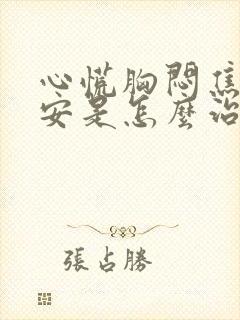 心慌胸悶焦
安是怎麼治
張占勝